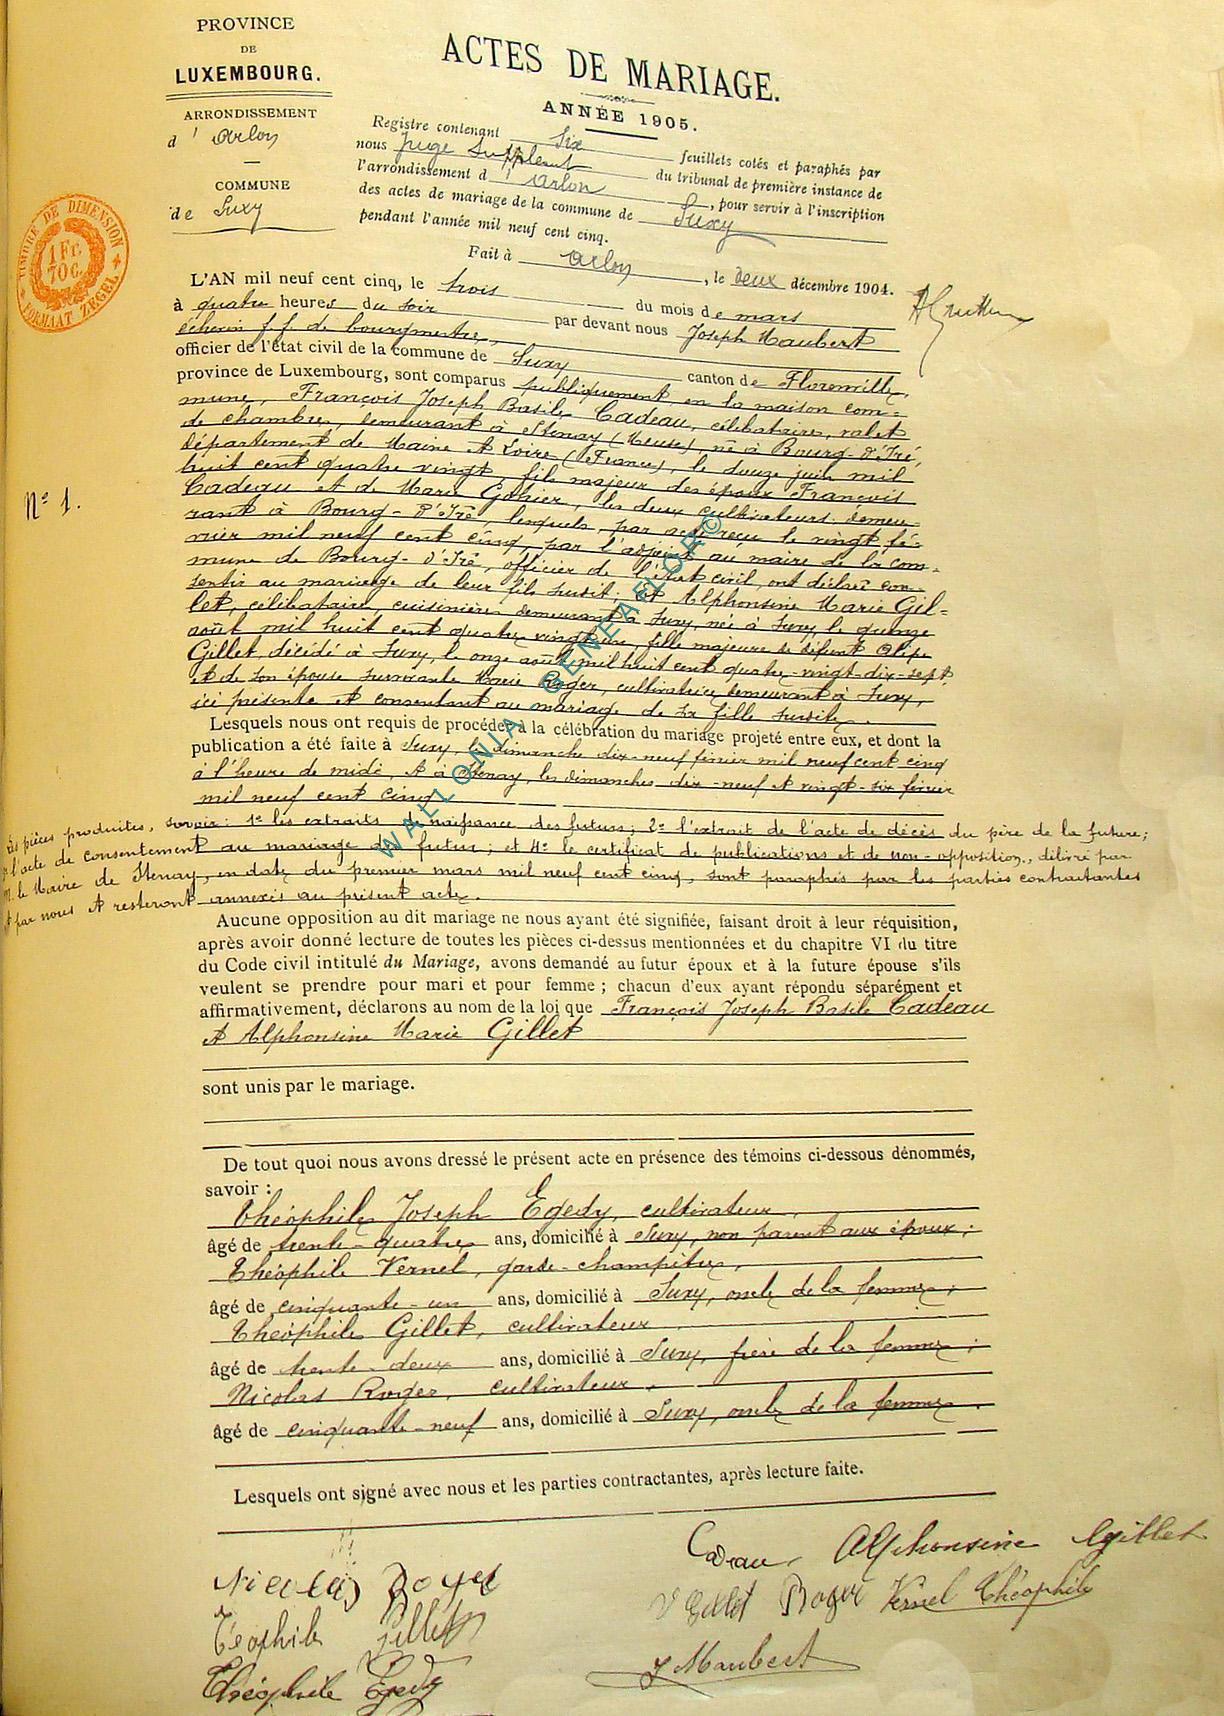 PROVINCE
DE
LUXEMBOURG.
ARRONDISSEMENT
d'Arlon
COMMUNE
de Suxy
TIMBRE DE DIMENSION
1 Fr.
70 C.
FORMAAT ZEGEL
ACTES DE MARIAGE.
ANNÉE 1905.
Registre contenant Six feuillets cotés et paraphés par
nous Juge Suppléant du tribunal de première instance de
l'arrondissement d'Arlon, pour servir à l'inscription
des actes de mariage de la commune de Suxy
pendant l'année mil neuf cent cinq.
Fait à Arlon, le deux décembre 1904.
L'AN mil neuf cent cinq, le trois du mois de mars
à quatre heures du soir par devant nous Joseph Maubert
échevin f.f. de bourgmestre,
officier de l'état civil de la commune de Suxy canton de Florenville,
province de Luxembourg, sont comparus publiquement en la maison com-
mune, François Joseph Basile Cadeau, célibataire, valet
de chambre, demeurant à Stenay (Meuse), né à Bourg-d'Iré,
département de Maine et Loire (France), le douze juin mil
huit cent quatre vingt, fils majeur des époux François
Cadeau et de Marie Gohier, les deux cultivateurs demeu-
rant à Bourg-d'Iré, lesquels, par acte reçu le vingt fé-
vrier mil neuf cent cinq, par l'adjoint au maire de la com-
mune de Bourg-d'Iré, officier de l'état civil, ont déclaré con-
sentir au mariage de leur fils susdit; et Alphonsine Marie Gil-
let, célibataire, cuisinière demeurant à Suxy, née à Suxy, le quinze
août mil huit cent quatre vingt un, fille majeure de défunt
Gillet, décédé à Suxy, le onze août mil huit cent quatre-vingt-dix-sept
et de son épouse survivante Marie Roger, cultivatrice demeurant à Suxy,
ici présente et consentant au mariage de sa fille susdite.
Lesquels nous ont requis de procéder à la célébration du mariage projeté entre eux, et dont la
publication a été faite à Suxy, le dimanche dix-neuf février mil neuf cent cinq
à l'heure de midi, et à Stenay, les dimanches dix-neuf et vingt-six février
mil neuf cent cinq
Les pièces produites, savoir: 1° les extraits de naissance des futurs; 2° l'extrait de l'acte de décès du père de la future;
l'acte de consentement au mariage du futur; et 4° le certificat de publications et de non-opposition, délivré par
M. le Maire de Stenay, en date du premier mars mil neuf cent cinq, sont paraphés par les parties contractantes
et par nous et resteront annexés au présent acte.
N° 1.
Aucune opposition au dit mariage ne nous ayant été signifiée, faisant droit à leur réquisition,
après avoir donné lecture de toutes les pièces ci-dessus mentionnées et du chapitre VI du titre
du Code civil intitulé du Mariage, avons demandé au futur époux et à la future épouse s'ils
veulent se prendre pour mari et pour femme ; chacun d'eux ayant répondu séparément et
affirmativement, déclarons au nom de la loi que François Joseph Basile Cadeau
et Alphonsine Marie Gillet
sont unis par le mariage.
De tout quoi nous avons dressé le présent acte en présence des témoins ci-dessous dénommés,
savoir :
Théophile Joseph Egedy, cultivateur,
âgé de trente-quatre ans, domicilié à Suxy, non parent aux époux;
Théophile Vernel, garde-champêtre,
âgé de cinquante-un ans, domicilié à Suxy, oncle de la femme;
Théophile Gillet, cultivateur
âgé de trente-deux ans, domicilié à Suxy, frère de la femme;
Nicolas Roger, cultivateur,
âgé de cinquante-neuf ans, domicilié à Suxy, oncle de la femme.
Lesquels ont signé avec nous et les parties contractantes, après lecture faite.
Cadeau. Alphonsine Gillet
Nicolas Roger
V Gillet Roger Vernel Théophile
Téophile Gillet
J Maubert
Théophile Egedy
WALLONIA GENEAFLOR©